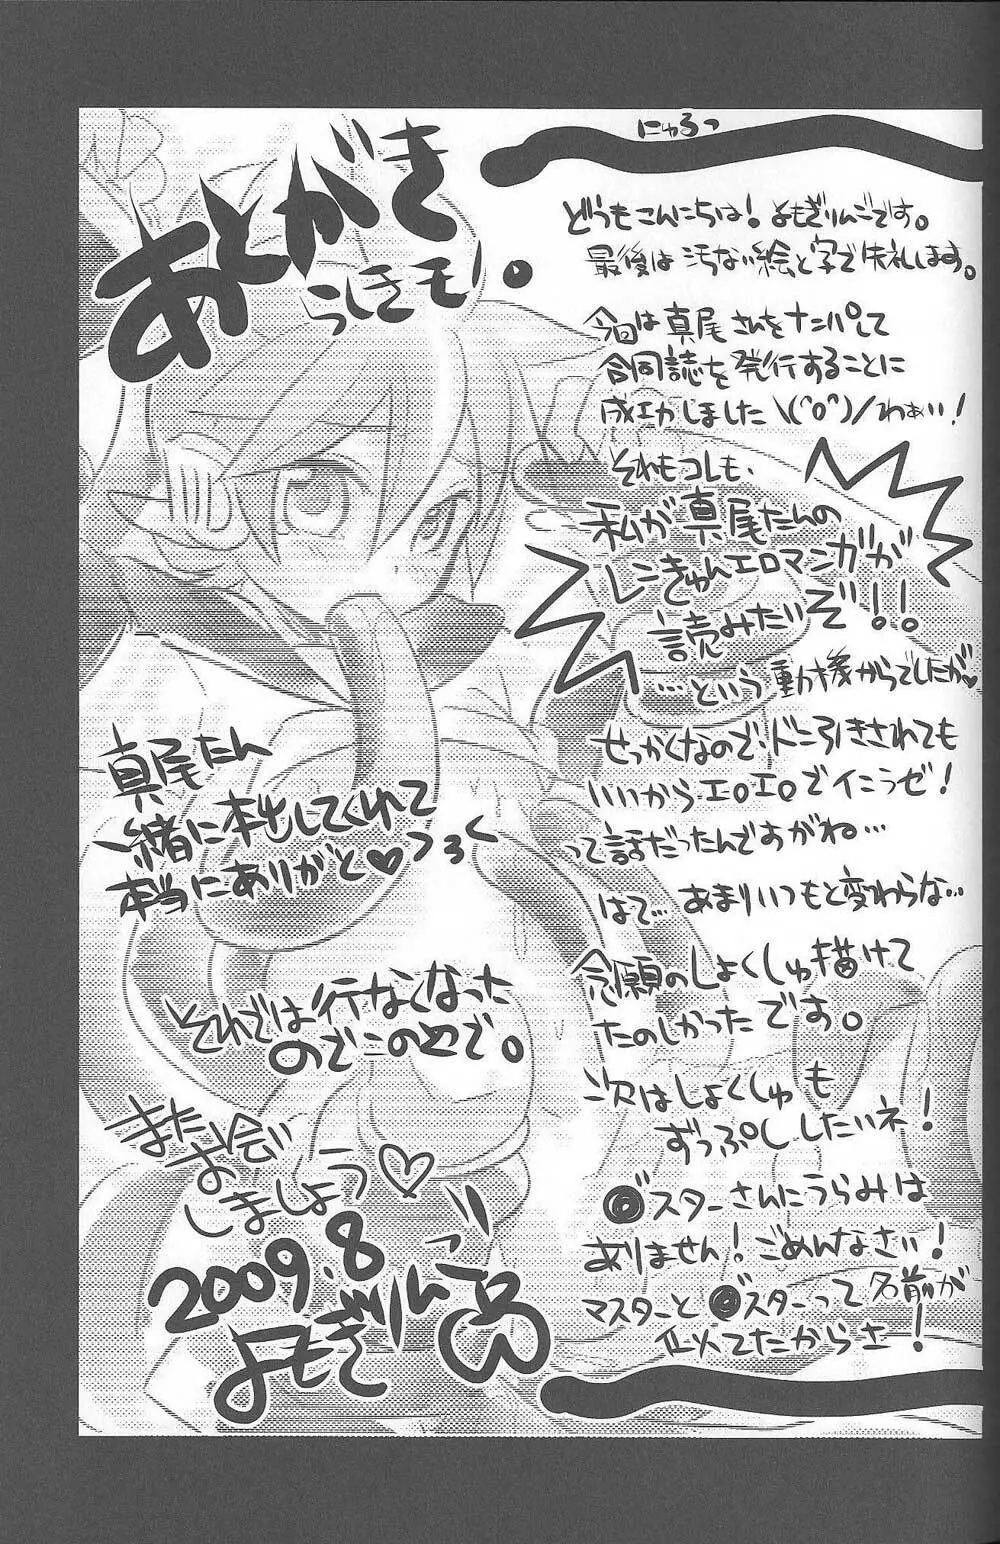 あとがき
らしきモノ。
にゅるっ
どうもこんにちは！よもぎりんごです。
最後は汚ない絵と字で失礼します。
今回は真尾さんをナンパして
合同誌を発行することに
成功しました\(^o^)/わぁい！
それもコレも、
私が真尾たんの
レンきゅんエロマンガが
読みたいぞ！！
…という動機からでしたが♥
せっかくなので、ドン引きされても
いいからエロエロでイこうゼ！
って話だったんですがね…
はて…あまりいつもと変わらな…
念願のしょくしゅ描けて
たのしかったです。
次はしょくしゅも
ずっぷししたいネ！
◎スターさんにうらみは
ありません！ごめんなさい！
マスターと◎スターって名前が
似てたからさ！
真尾たん
一緒に本出してくれて
本当にありがと♡
それでは行なくなった
のでこのへんで。
またお会い
しましょう♡
2009.8
よもぎりんご